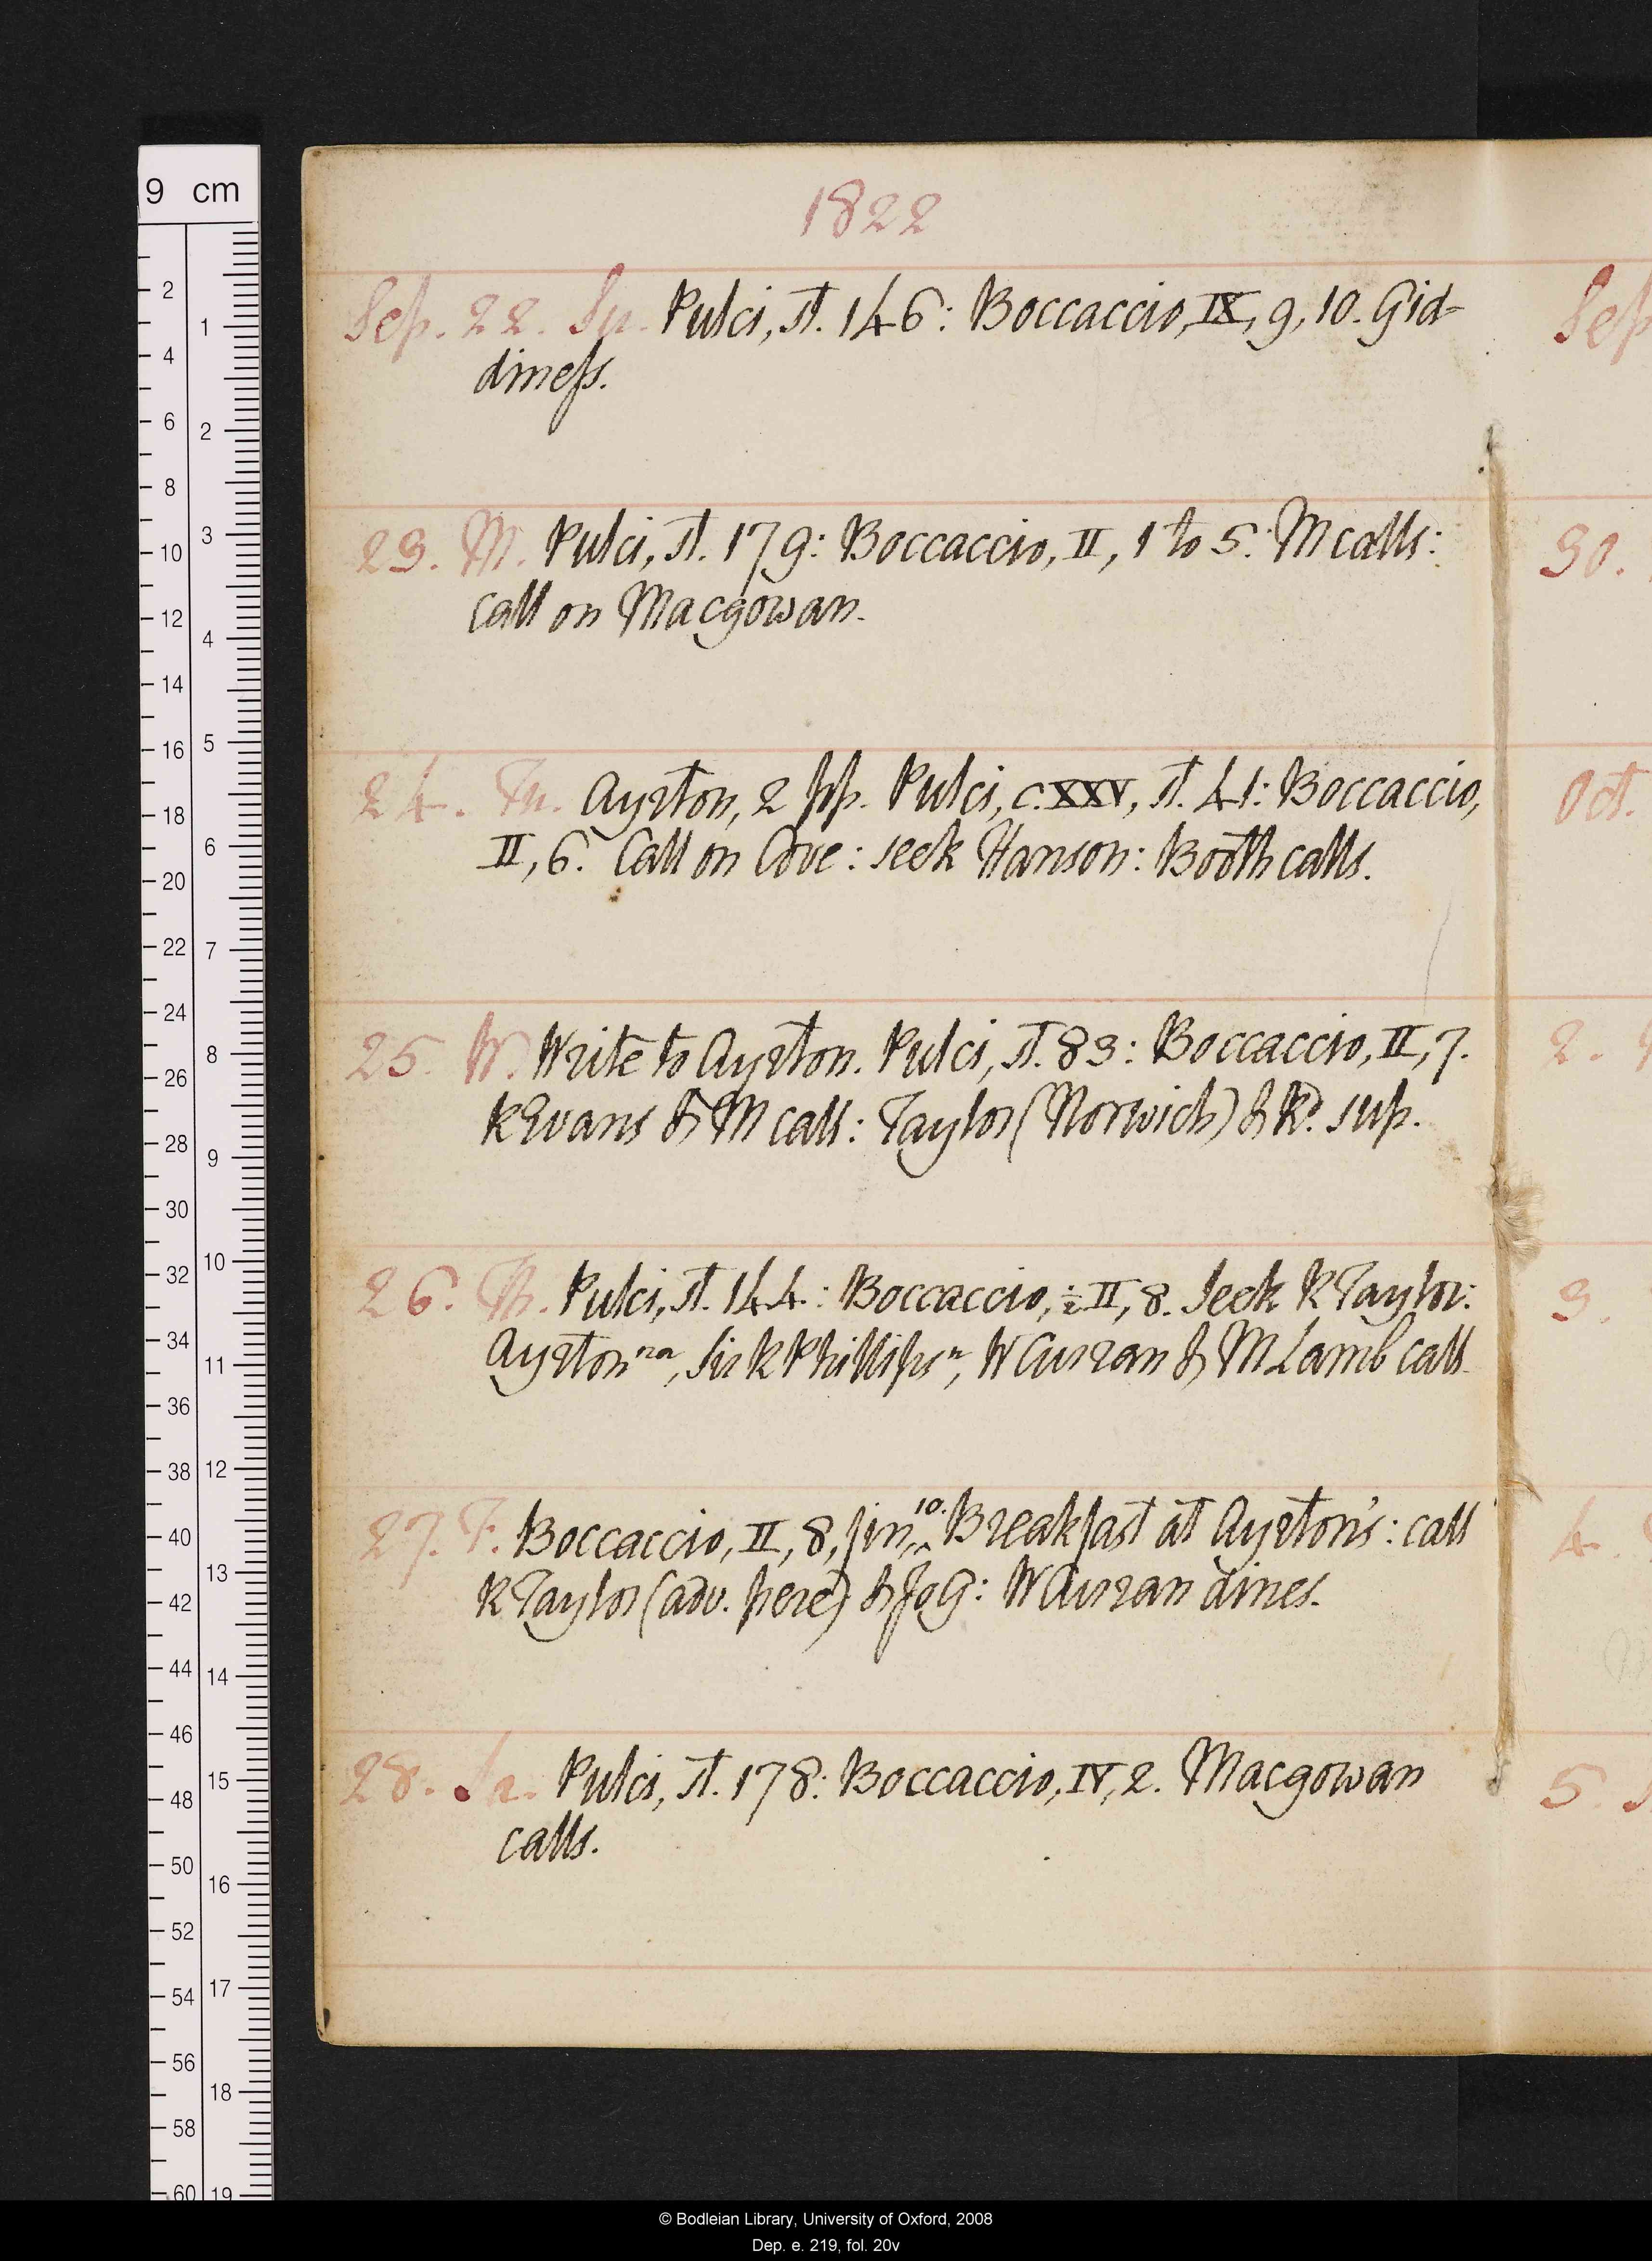 1822
Sep. 22. Su. Pulci, st. 146: Boccaccio, IX, 9, 10. Gid-
diness.
23. M. Pulci, st. 179: Boccaccio, II, 1 to 5. M calls:
call on Macgowan.
24. Tu. Ayrton, 2 pp. Pulci, c. XXV, st. 41: Boccaccio,
II, 6. Call on Cove: seek Hanson: Booth calls.
25. W. Write to Ayrton. Pulci, st. 83: Boccaccio, II, 7.
K Evans & M call: Taylor (Norwich) & Rd. sup.
26. Th. Pulci, st. 144: Boccaccio, II, 8. Seek R Taylor:
Ayrton na, Sir R Phillips n, W Curran & M Lamb call
27. F. Boccaccio, II, 8, fin, 10. Breakfast at Ayrton's: call
R Taylor (adv. pere) & Jo G: W Curran dines.
28. Sa. Pulci, st. 178: Boccaccio, IV, 2. Macgowan
calls.
Sep
30.
Oct.
2.
3.
4.
5. S
9 cm
2
4
6
8
10
12
14
16
18
20
22
24
26
28
30
32
34
36
38
40
42
44
46
48
50
52
54
56
58
60
1
2
3
4
5
6
7
8
9
10
11
12
13
14
15
16
17
18
19
© Bodleian Library, University of Oxford, 2008
Dep. e. 219, fol. 20v